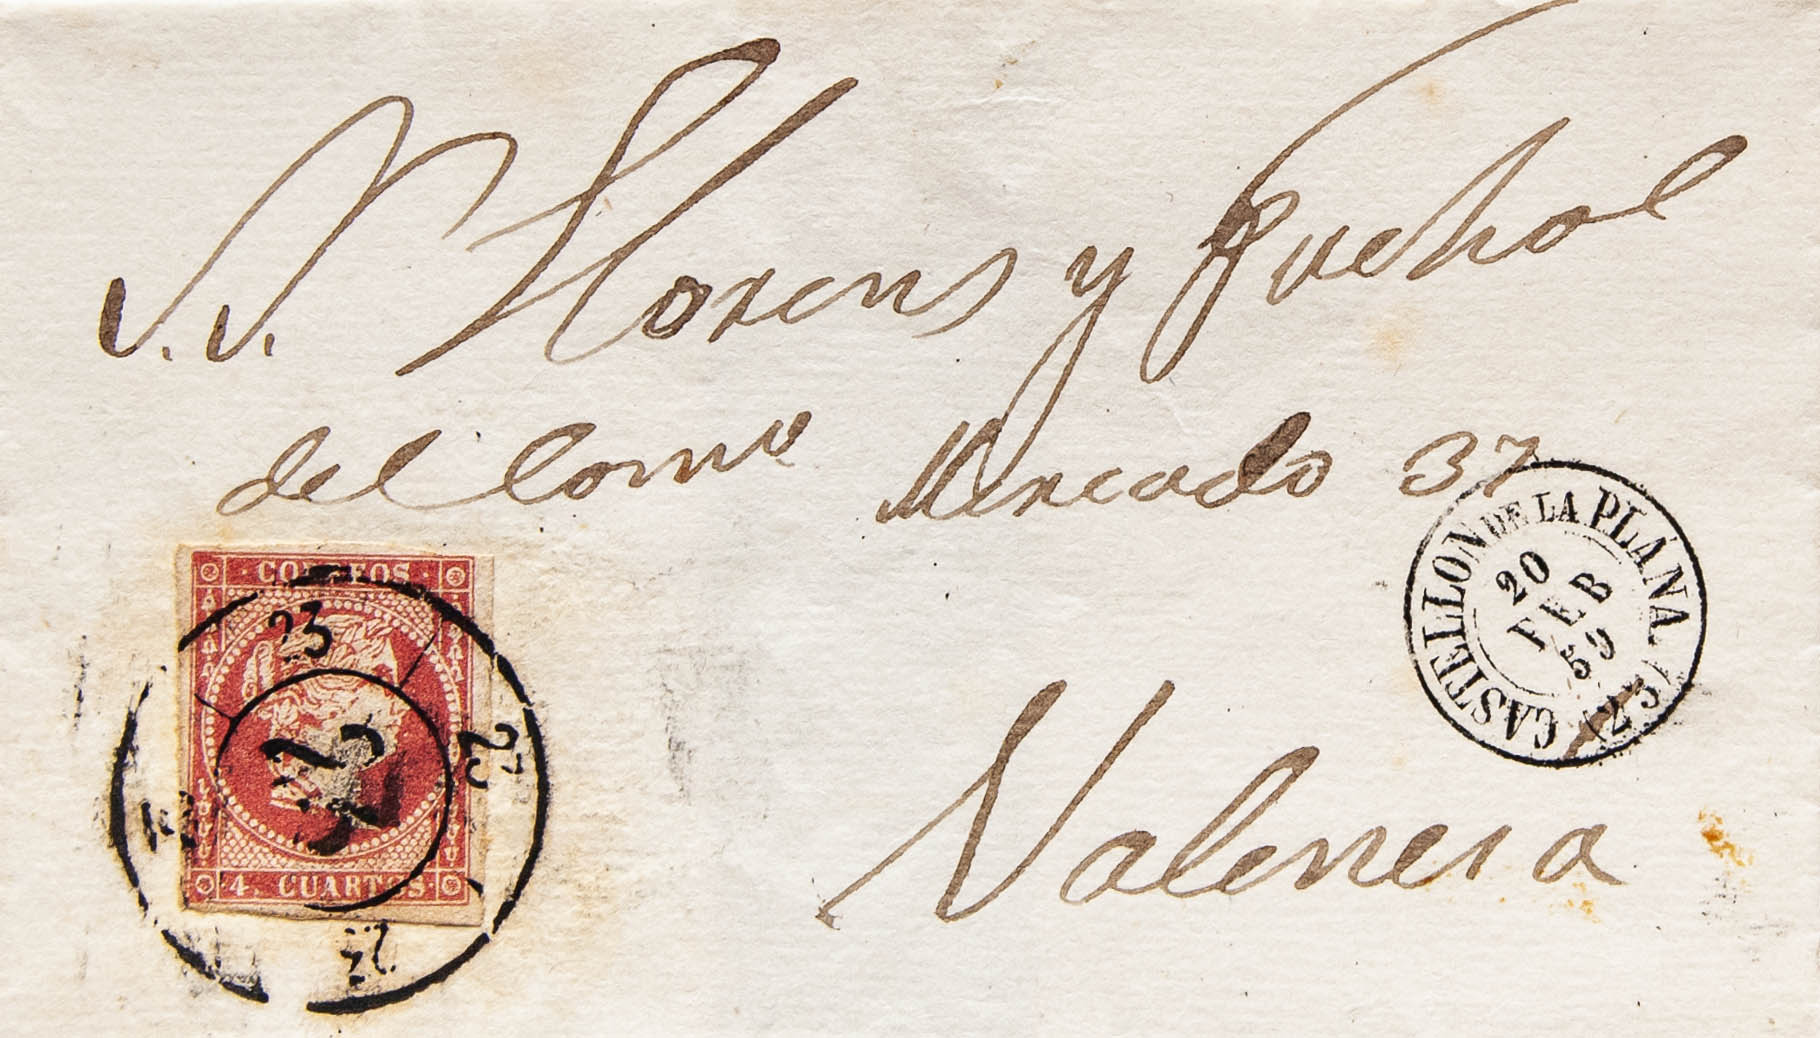 S.S. Llorens y Puchol
del Comº Mercado 37
CORREOS
4. CUARTOS
23
23
23
CASTELLON DE LA PLANA. (23)
20
FEB
59
Valencia